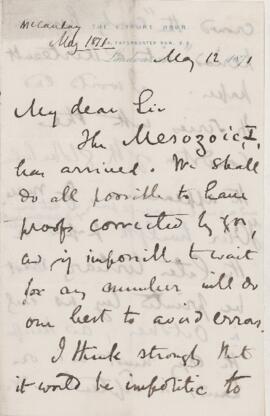 McCauley
May 1871
THE LEISURE HOUR
56, PATERNOSTER ROW, E.C.
London May 12 1871
My dear Sir
The Mesozoic, I,
has arrived. We shall
do all possible to have
proofs corrected by you,
and if impossible to wait
for any number will do
our best to avoid errors.
I think strongly that
it would be impolitic to